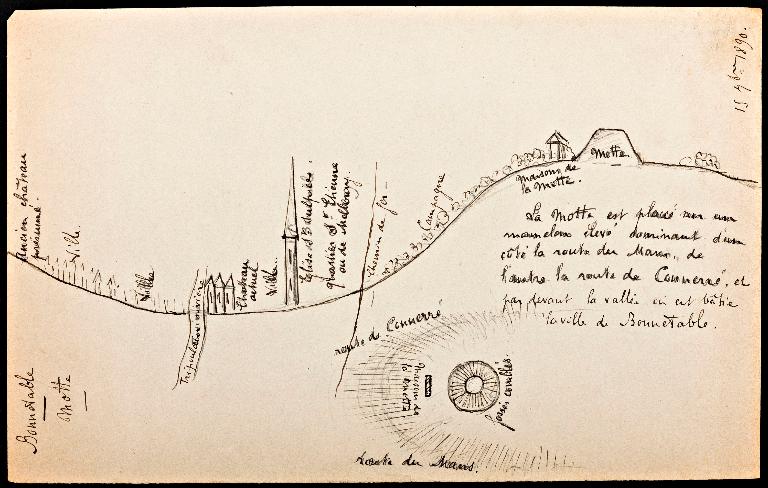 15 9bre 1890.
Ancien château
présumé.
Ville.
Ville
Château
actuel
Ville
Eglise St Sulpice.
quartier St Etienne
ou de Malboury
chemin de fer
Campagne
Maisons de
la Motte.
Motte
La Motte est placée sur un
mamelon élevé dominant d'un
côté la route du Mans, de
l'autre la route de Connerré, et
par devant la vallée où est bâtie
la ville de Bonnétable.
route de Connerré
Maison de
la Motte
fossés comblés.
route du Mans.
Bonnétable
Motte